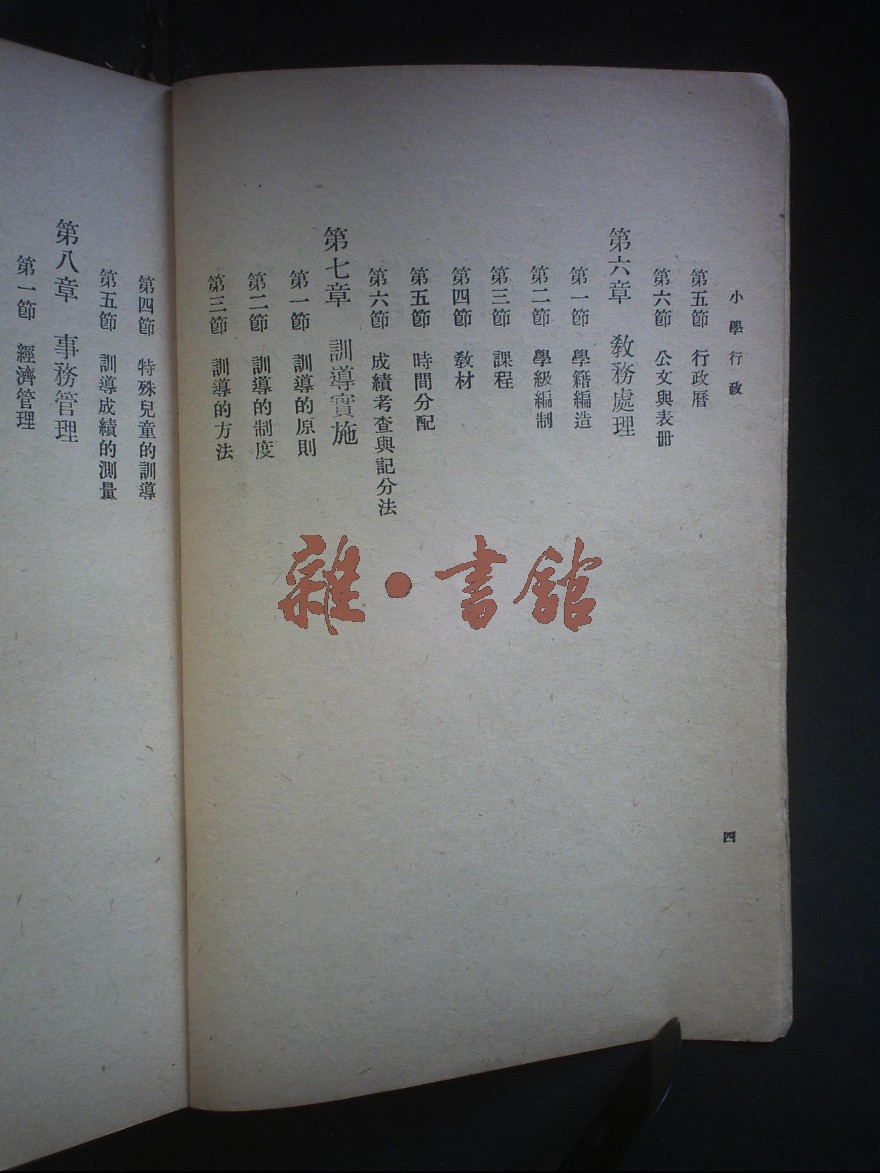 小學行政
第五節 行政曆
第六節 公文與表冊
第六章 敎務處理
第一節 學籍編造
第二節 學級編制
第三節 課程
第四節 敎材
第五節 時間分配
第六節 成績考查與記分法
第七章 訓導實施
第一節 訓導的原則
第二節 訓導的制度
第三節 訓導的方法
四
第四節 特殊兒童的訓導
第五節 訓導成績的測量
第八章 事務管理
第一節 經濟管理
雜·書館